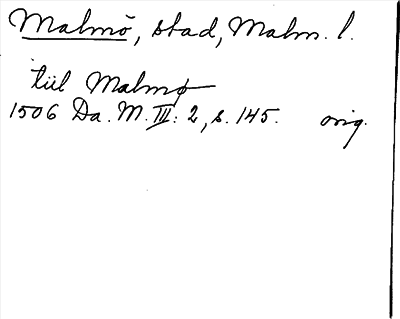 Malmö, stad, Malm. l.
tiil Malmø
1506 Da. M. III: 2, s. 145. orig.